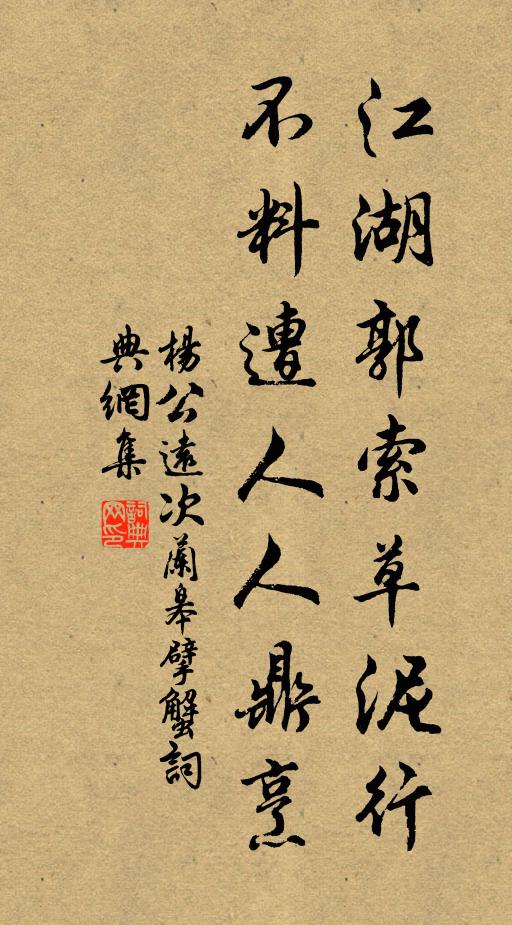 江湖郭索草泥行
不料遭人人鼎烹
楊公遠次蘭皋擘蟹詞
典網集
詞典
网印